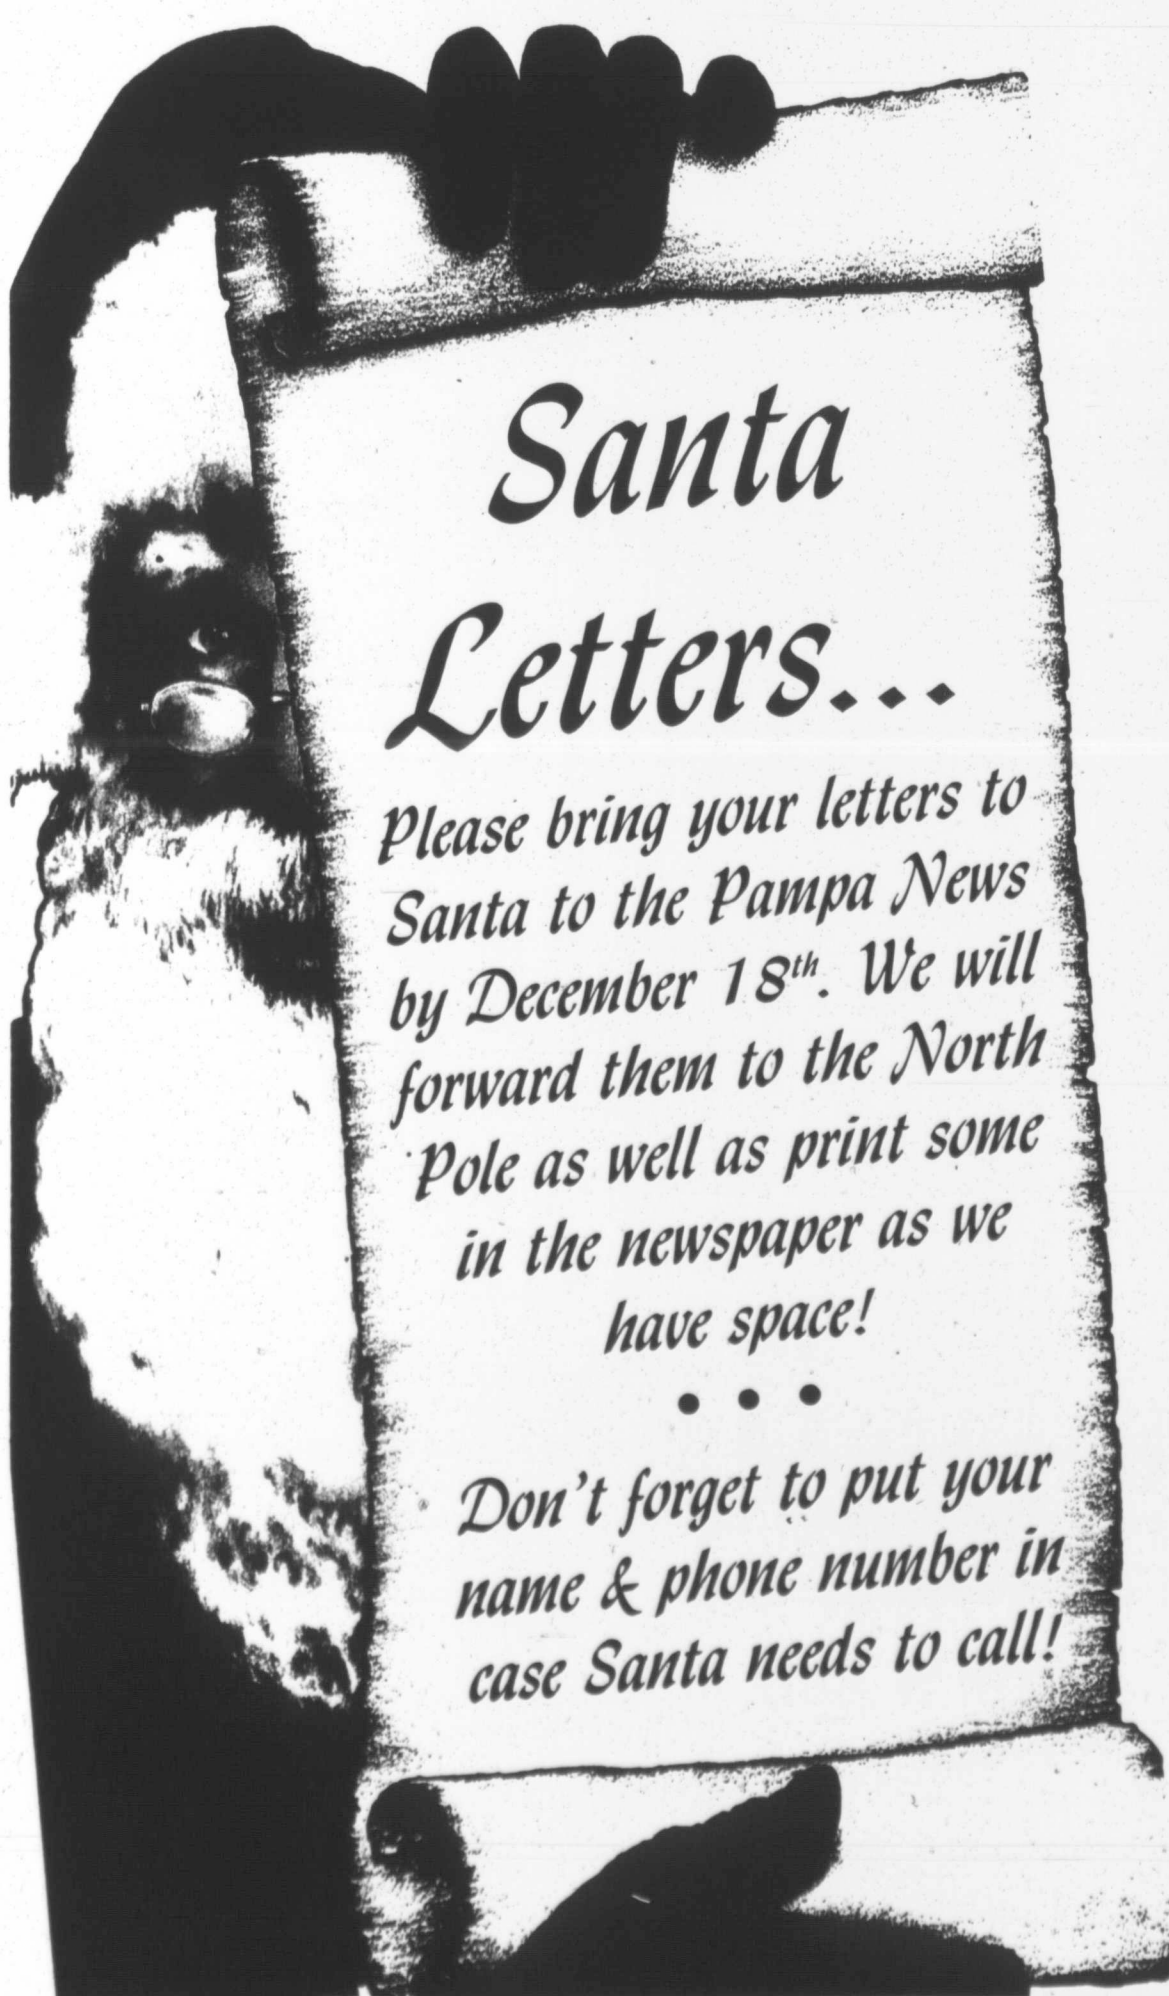 Santa
Letters...
Please bring your letters to
Santa to the Pampa News
by December 18th. We will
forward them to the North
Pole as well as print some
in the newspaper as we
have space!
• • •
Don't forget to put your
name & phone number in
case Santa needs to call!